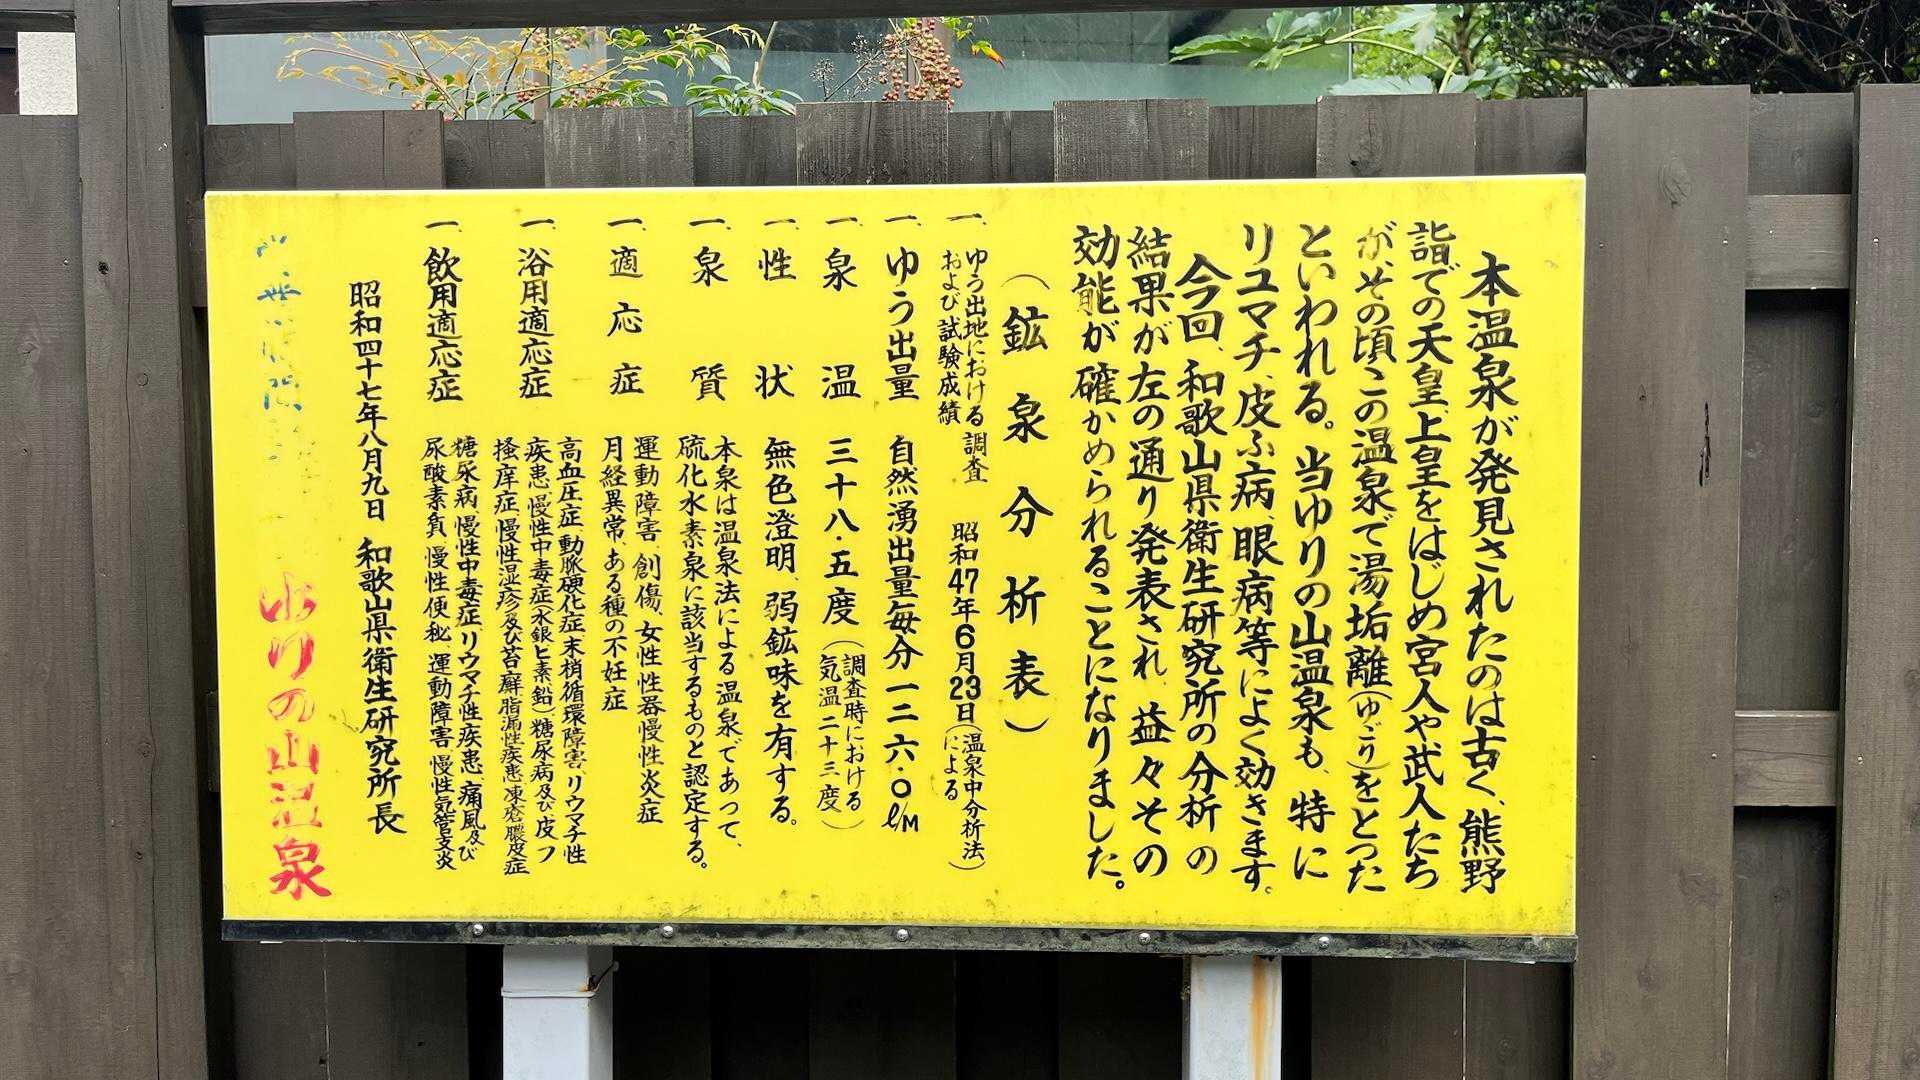 本温泉が発見されたのは古く、熊野
詣での天皇、上皇をはじめ宮人や武人たち
が、その頃この温泉で湯垢離(ゆごり)をとった
といわれる。当ゆりの山温泉も、特に
リユマチ、皮ふ病、眼病等によく効きます。
今回、和歌山県衛生研究所の分析の
結果が左の通り発表され、益々その
効能が確かめられることになりました。
(鉱泉分析表)
一、ゆう出地における調査 昭和47年6月23日(温泉中分析法)
および試験成績 (による)
一、ゆう出量 自然湧出量毎分一二六・〇ℓ/M
一、泉温 三十八・五度(調査時における
気温二十三度)
一、性状 無色澄明、弱鉱味を有する。
一、泉質 本泉は温泉法による温泉であって、
硫化水素泉に該当するものと認定する。
一、適応症 運動障害、創傷、女性性器慢性炎症
月経異常、ある種の不妊症
一、浴用適応症 高血圧症、動脈硬化症、末梢循環障害、リウマチ性
疾患、慢性中毒症(水銀ヒ素鉛)、糖尿病及び皮フ
掻痒症、慢性湿疹及び苔癬、脂漏性疾患、凍瘡、膿皮症
一、飲用適応症 糖尿病、慢性中毒症、リウマチ性疾患、痛風及び
尿酸素質、慢性便秘、運動障害、慢性気管支炎
昭和四十七年八月九日 和歌山県衛生研究所長
ゆりの山温泉